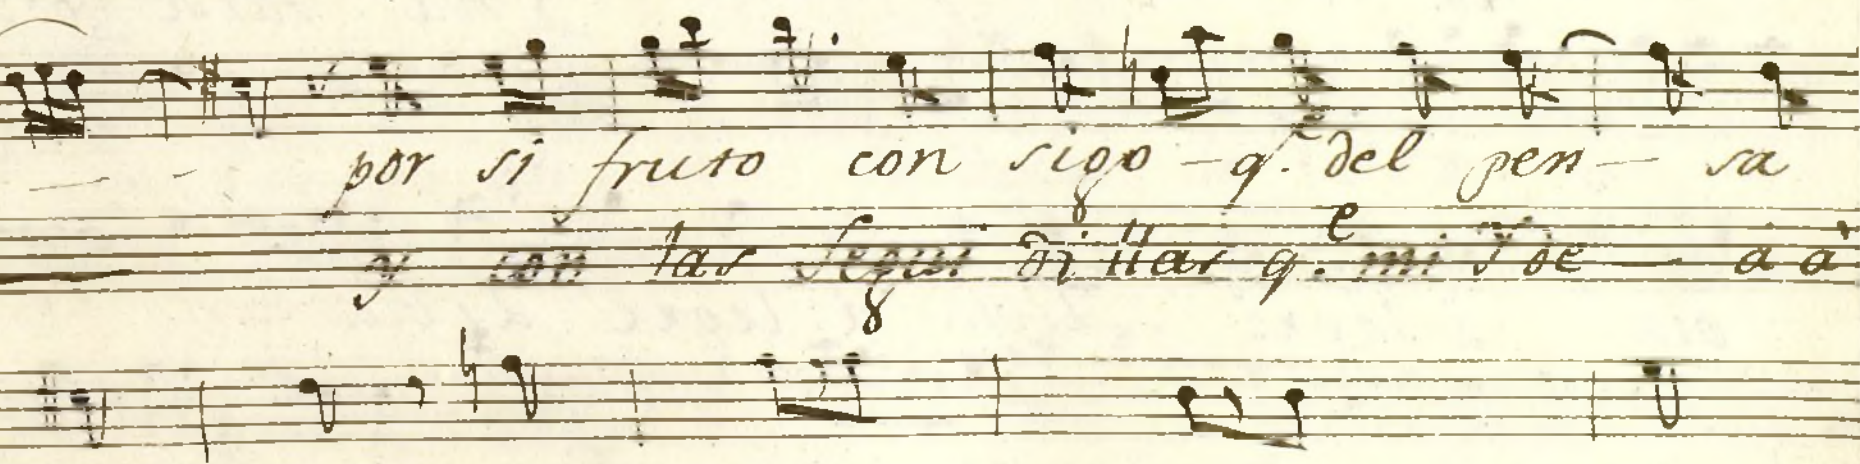 por si fruto con sigo - q.^e del pen - sa
y con las Segui di llas q.^e mi Yde - a à